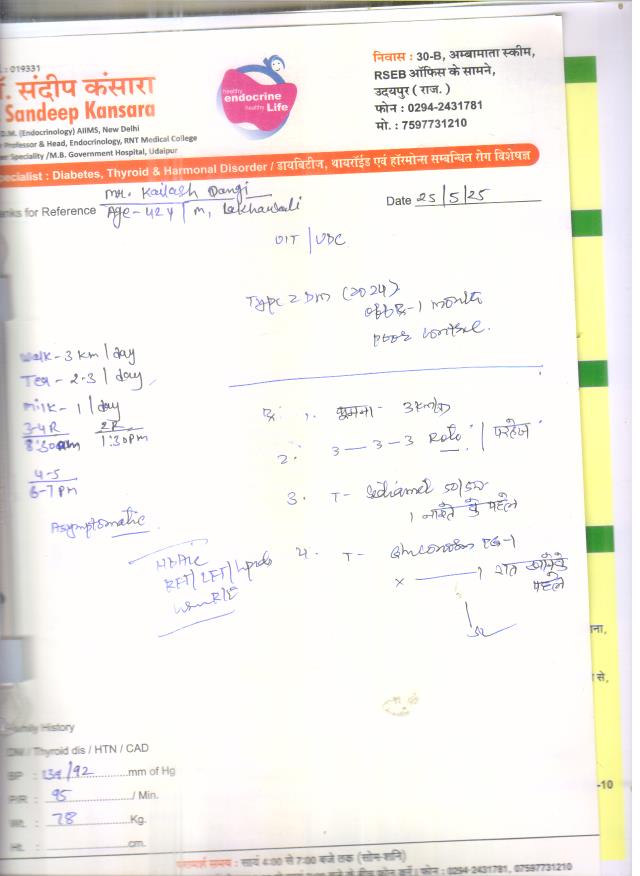 : 019331
. संदीप कंसारा
Sandeep Kansara
D.M. (Endocrinology) AIIMS, New Delhi
Professor & Head, Endocrinology, RNT Medical College
Speciality /M.B. Government Hospital, Udaipur
healthy
endocrine
healthy Life
निवास : 30-B, अम्बामाता स्कीम,
RSEB ऑफिस के सामने,
उदयपुर ( राज. )
फोन : 0294-2431781
मो. : 7597731210
pecialist : Diabetes, Thyroid & Harmonal Disorder / डायबिटीज, थायरॉईड एवं हॉरमोन्स सम्बन्धित रोग विशेषज्ञ
anks for Reference Mr. Kailash Dangi
Age - 42 y / m, Lakhawali
Date 25/5/25
Type 2 DM (2024)
1 month
poor control.
Walk - 3 km / day
Tea - 2-3 / day
Milk - 1 / day
3-4R 2R
8:30am 1:30PM
4-5
6-7 PM
Asymptomatic
1. घूमना - 3km/D
2. 3 — 3 — 3 Roti / परहेज
3. T- 50/500
1 नाश्ते के पहले
4. T- PG-1
x ——— 1 रात खाने के
पहले
HbA1c
RFT/LFT/Lipids
Urine R/E
Family History
DM / Thyroid dis / HTN / CAD
BP : 134/92 mm of Hg
P/R : 95 / Min.
Wt. : 78 Kg.
Ht. : cm.
परामर्श समय : सायं 4:00 से 7:00 बजे तक (सोम-शनि)
फोन : 0294-2431781, 07597731210
ना,
से,
-10